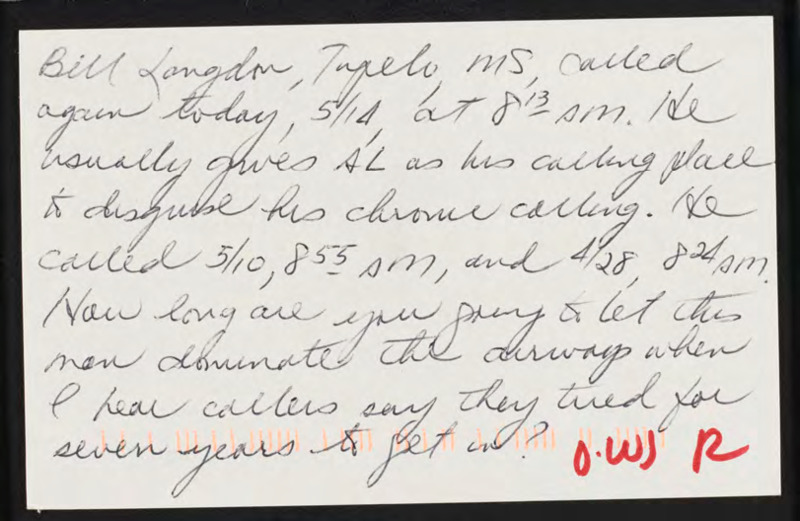 Bill Langdon, Tupelo, MS, called
again today, 5/14, at 8 13 AM. He
usually gives AL as his calling place
to disguise his chronic calling. He
called 5/10, 8 55 AM, and 4/28, 8 24 AM.
How long are you going to let this
man dominate the airways when
I hear callers say they tried for
seven years to get in?
R